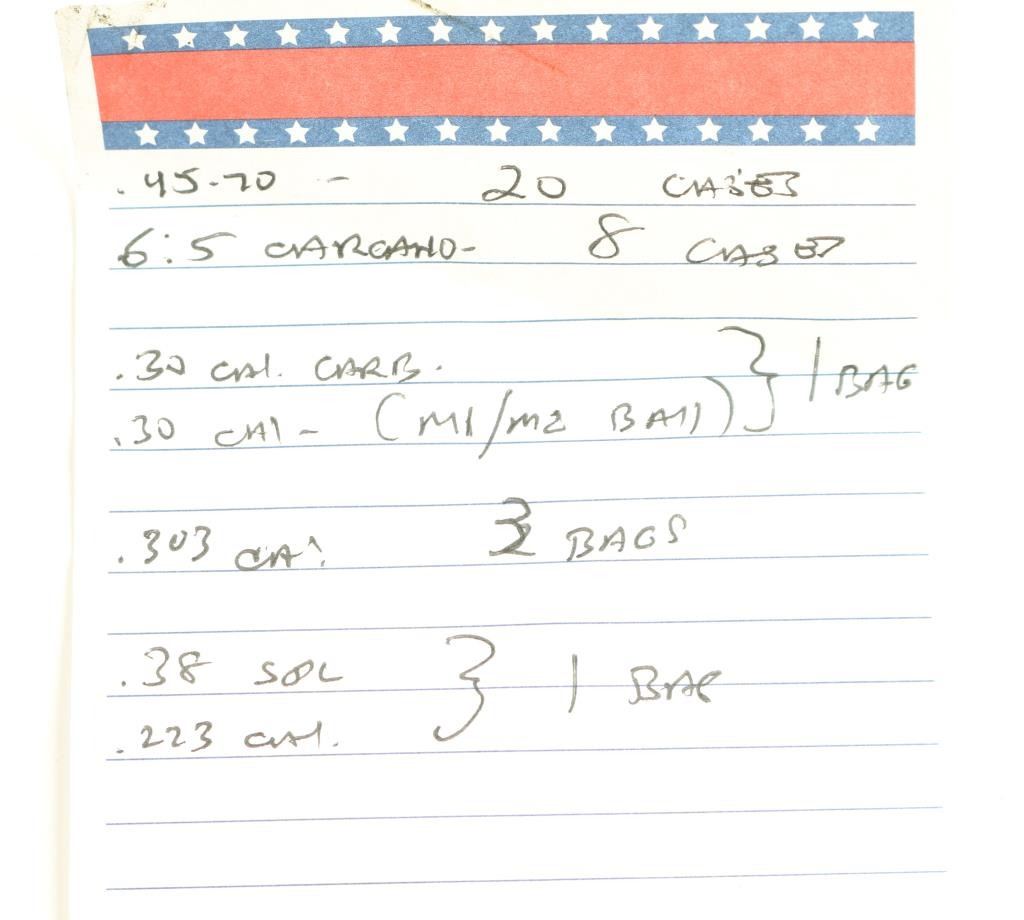 .45-70 - 20 CASES
6.5 CARCANO- 8 CASES
.30 CAL. CARB. } 1 BAG
.30 CAL - (M1/M2 BALL)
.303 CAL. BAGS
.38 SPL } 1 BAG
.223 CAL.